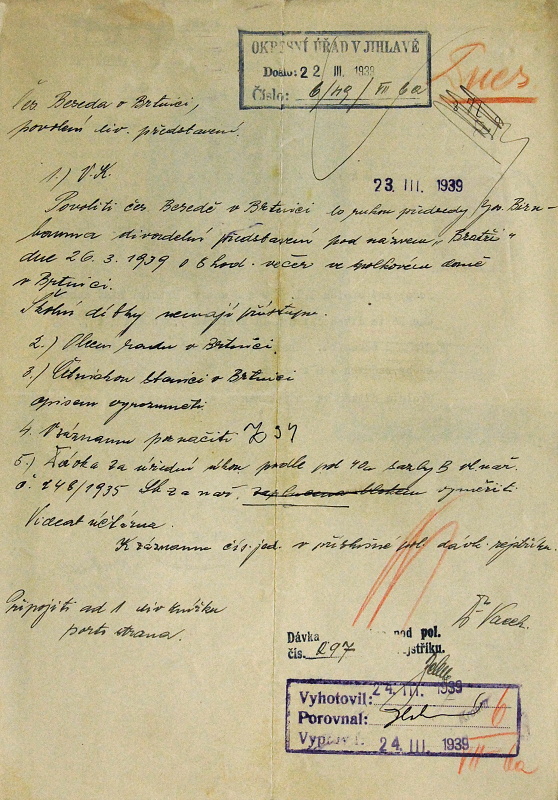 OKRESNÍ ÚŘAD V JIHLAVĚ
Došlo: 22 III. 1939
Číslo: 6/49/VII 6a
Dnes
Čes. Beseda v Brtnici,
povolení div. představení.
1.) V.K.
23 III. 1939
Povoliti čes. Besedě v Brtnici
divadelní představení pod názvem „Bratři"
dne 26.3.1939 o 8 hod. večer ve spolkovém domě
v Brtnici.
Školní dítky nemají přístupu.
2.) Obecní radu v Brtnici
3.) Četnickou stanici v Brtnici
opisem vyrozuměti.
4. V záznamu poznačiti
5.) Dávka za úřední úkon podle pol. sazby B vl. nař.
č. 148/1935 Sb. z. a nař. vyměřiti.
Videat účtárna.
K záznamu čís. jed. v příslušné pol. dávk. rejstříku.
Připojiti ad 1 div. knížka
porto strana.
Dávka pod pol.
čís. 297 rejstříku.
Vyhotovil: 24. III. 1939
Porovnal:
Vypravil: 24. III. 1939
6
VII-6a